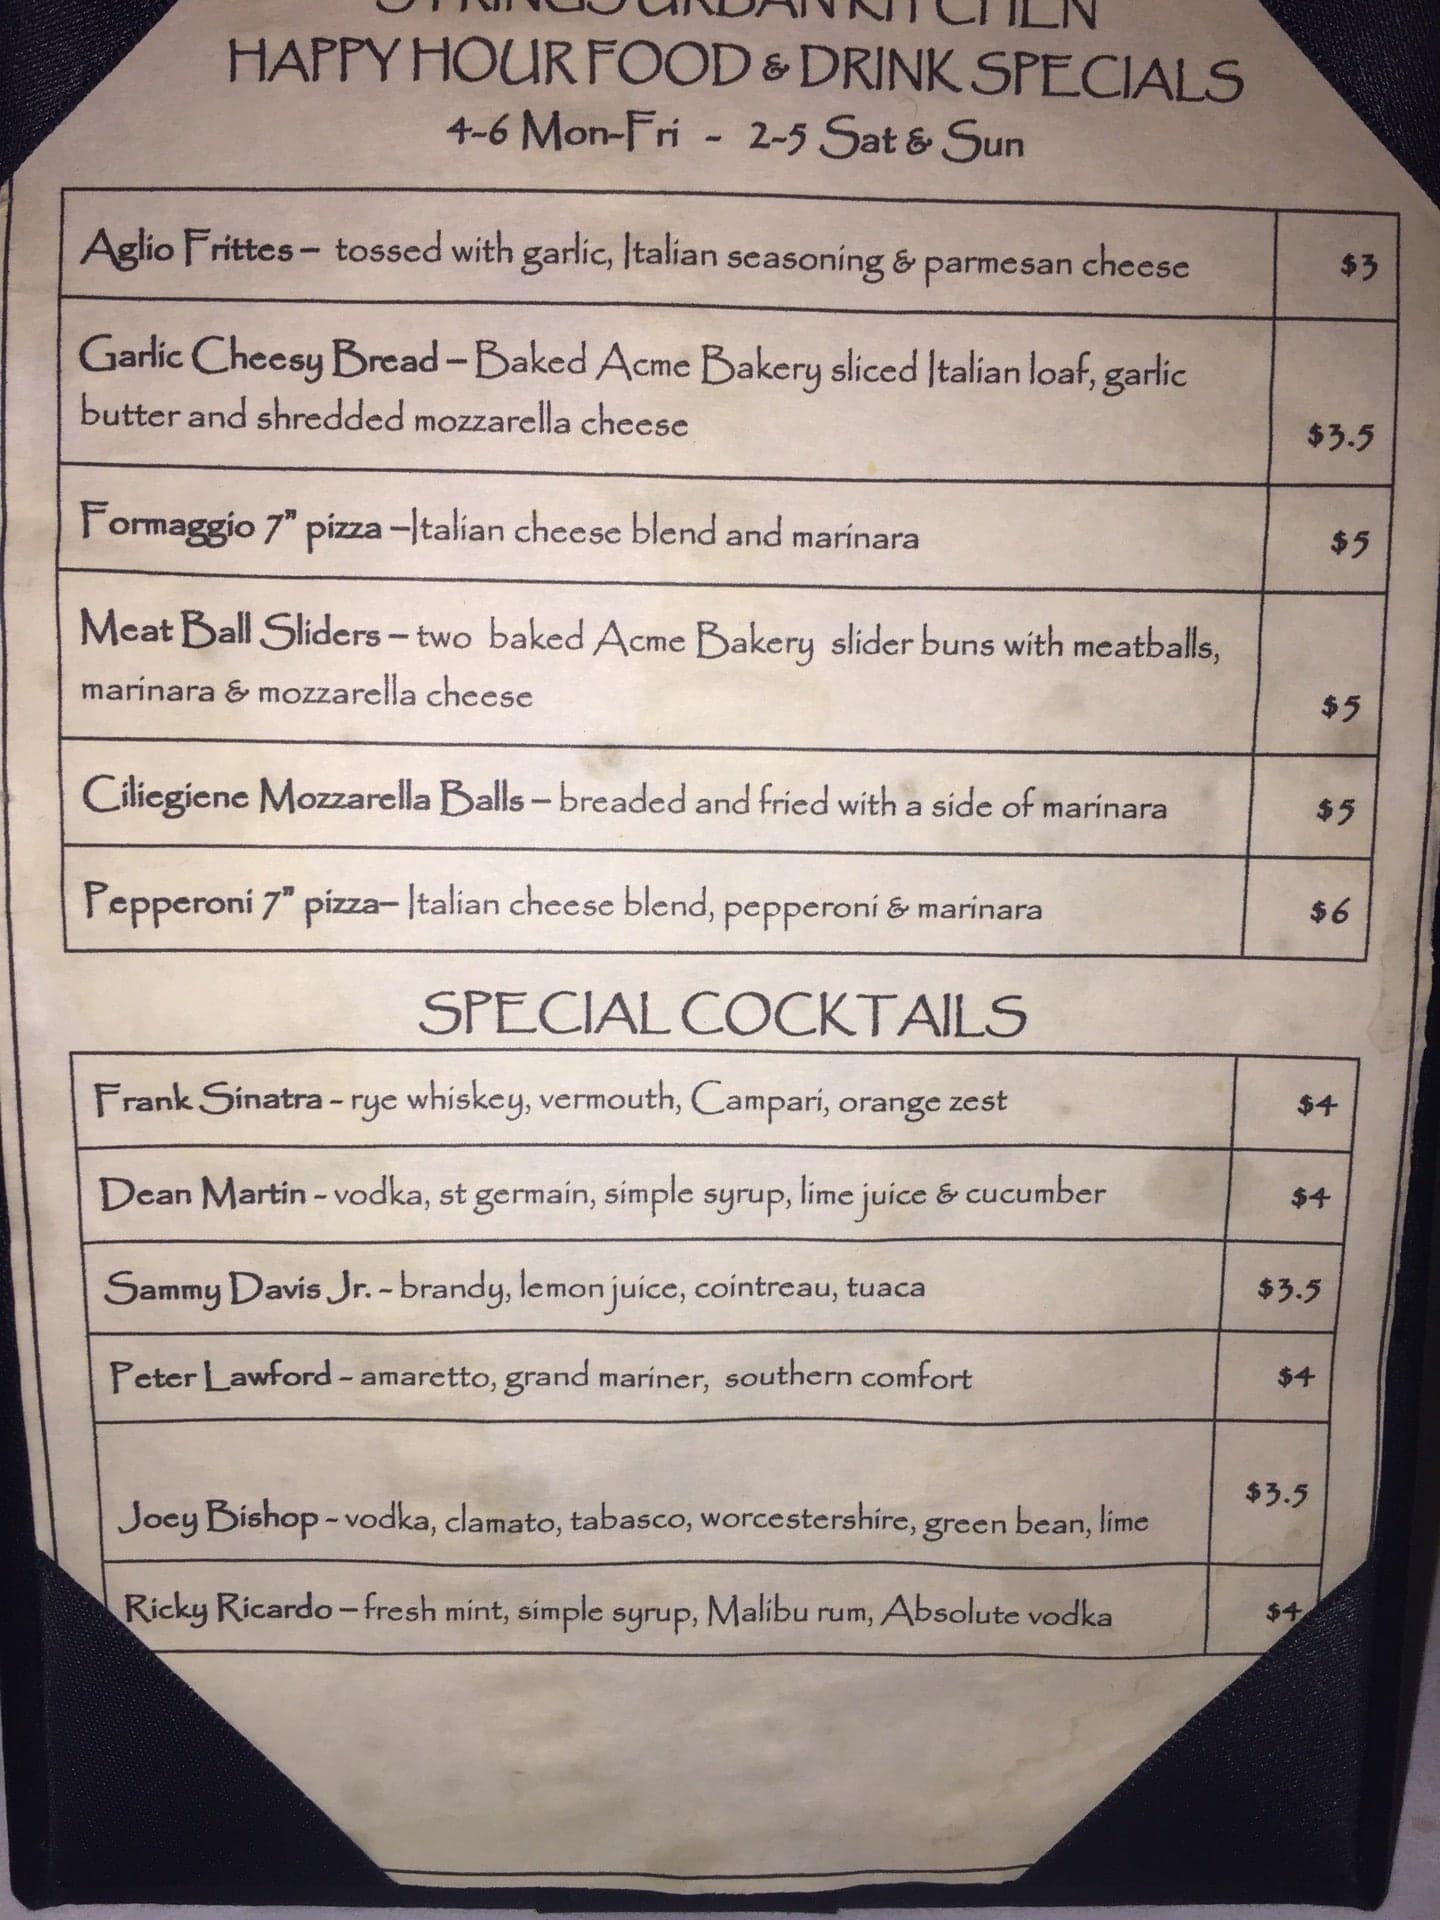 STRINGS URBAN KITCHEN
HAPPY HOUR FOOD & DRINK SPECIALS
4-6 Mon-Fri - 2-5 Sat & Sun
Aglio Frittes – tossed with garlic, Italian seasoning & parmesan cheese $3
Garlic Cheesy Bread – Baked Acme Bakery sliced Italian loaf, garlic
butter and shredded mozzarella cheese $3.5
Formaggio 7" pizza –Italian cheese blend and marinara $5
Meat Ball Sliders – two baked Acme Bakery slider buns with meatballs,
marinara & mozzarella cheese $5
Ciliegiene Mozzarella Balls – breaded and fried with a side of marinara $5
Pepperoni 7" pizza– Italian cheese blend, pepperoni & marinara $6
SPECIAL COCKTAILS
Frank Sinatra - rye whiskey, vermouth, Campari, orange zest $4
Dean Martin - vodka, st germain, simple syrup, lime juice & cucumber $4
Sammy Davis Jr. - brandy, lemon juice, cointreau, tuaca $3.5
Peter Lawford - amaretto, grand mariner, southern comfort $4
Joey Bishop - vodka, clamato, tabasco, worcestershire, green bean, lime $3.5
Ricky Ricardo – fresh mint, simple syrup, Malibu rum, Absolute vodka $4